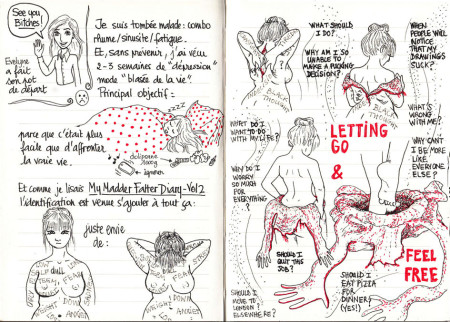 See you,
Bitches!
Evelyne
a fait
son pot
de départ
Je suis tombée malade: combo
rhume/sinusite/fatigue.
Et, sans prévenir, j'ai vécu
2-3 semaines de "dépression"
mode "blasée de la vie".
Principal objectif:
zzzz
parce que c'était plus
facile que d'affronter
la vraie vie.
doliprane
1000g
ignorer
Et comme je lisais My Madder Fatter Diary-Vol 2
l'identification est venue s'ajouter à tout ça:
juste envie
de:
dull
FEAR
WEIGHT
DOWN
ANGER
WEIGHT
DOWN
ANGER
WHAT SHOULD
I DO?
WHY AM I SO
UNABLE TO
MAKE A FUCKING
DECISION?
BLACK
THOUGHTS
WHEN
PEOPLE WILL
NOTICE
THAT MY
DRAWINGS
SUCK?
BLACK
THOUGHTS
WHAT'S
WRONG
WITH ME?
WHAT DO I
WANT TO DO
WITH MY LIFE?
LETTING
GO
&
WHY CAN'T
I BE MORE
LIKE
EVERYONE
ELSE?
WHY DO I
WORRY
SO MUCH
FOR
EVERYTHING
?
SHOULD I
QUIT THIS
JOB?
FEEL
FREE
SHOULD I
MOVE TO
LONDON/
ELSEWHERE?
SHOULD I
EAT PIZZA
FOR
DINNER?
(YES!)